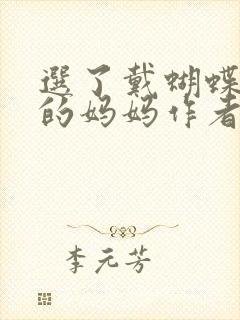 選了戴蝴蝶
的妈妈作者
李元芳